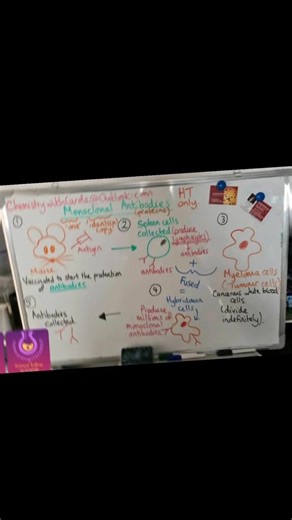 Chemistrywithcarda@Outlook.com
HT only.
Monoclonal Antibodies
"one" "identical copy" (proteins)
①
Antigen
Mouse
Vaccinated to start the production
antibodies
② Spleen cells
collected (produce
lymphocytes)
antibodies
+
antibodies
③
Myeloma cells
(Tumour cells)
Cancerous white blood
cells
(divide
indefinitely).
Fused
=
④
Hybridoma
cells
Produce
millions of
monoclonal
antibodies.
⑤
Antibodies
collected.